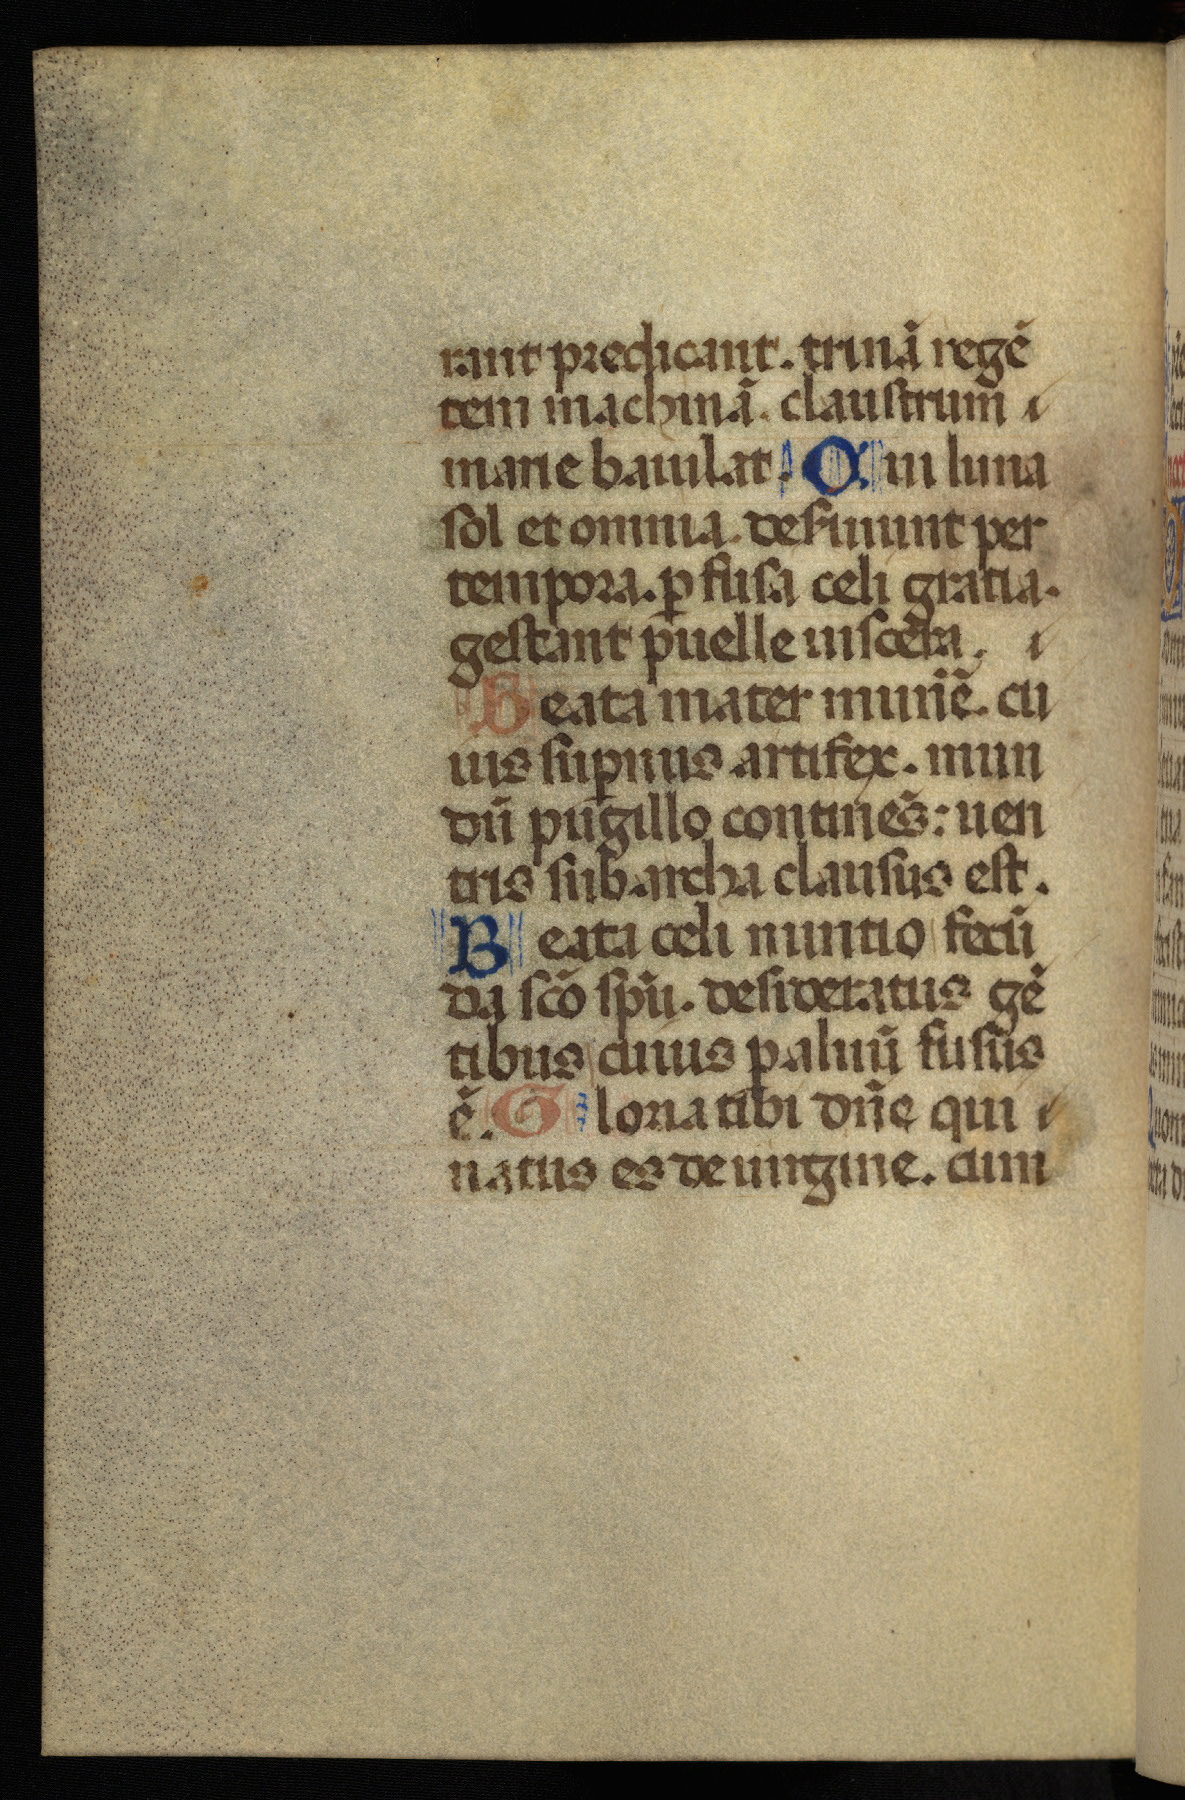 rant predicant. trinā regē
tem machinā. claustrum
marie baiulat. Qui luna
sol et omnia. deseruiunt per
tempora. ꝑfusa celi gratia.
gestant puelle uiscera.
Beata mater munē. cu
ius suꝑnus artifex. mun
dū pugillo continēs: uen
tris sub archa clausus est.
Beata celi nuntio fecū
da sc̄o sp̄u. desideratus gē
tibus cuius ꝑ aluū fusus
ē. Gloria tibi dn̄e qui
natus es de uirgine. cum